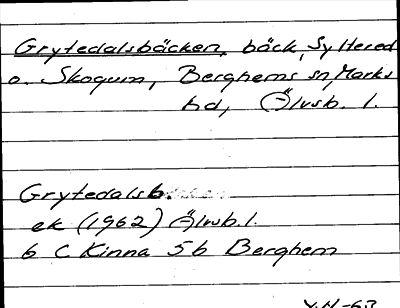 Grytedalsbäcken, bäck, Sy Hered
o. Skogum, Berghems sn, Marks
hd, Älvsb. l.
Grytedalsb.
ek (1962) Älvsb. l.
6 C Kinna 5b Berghem